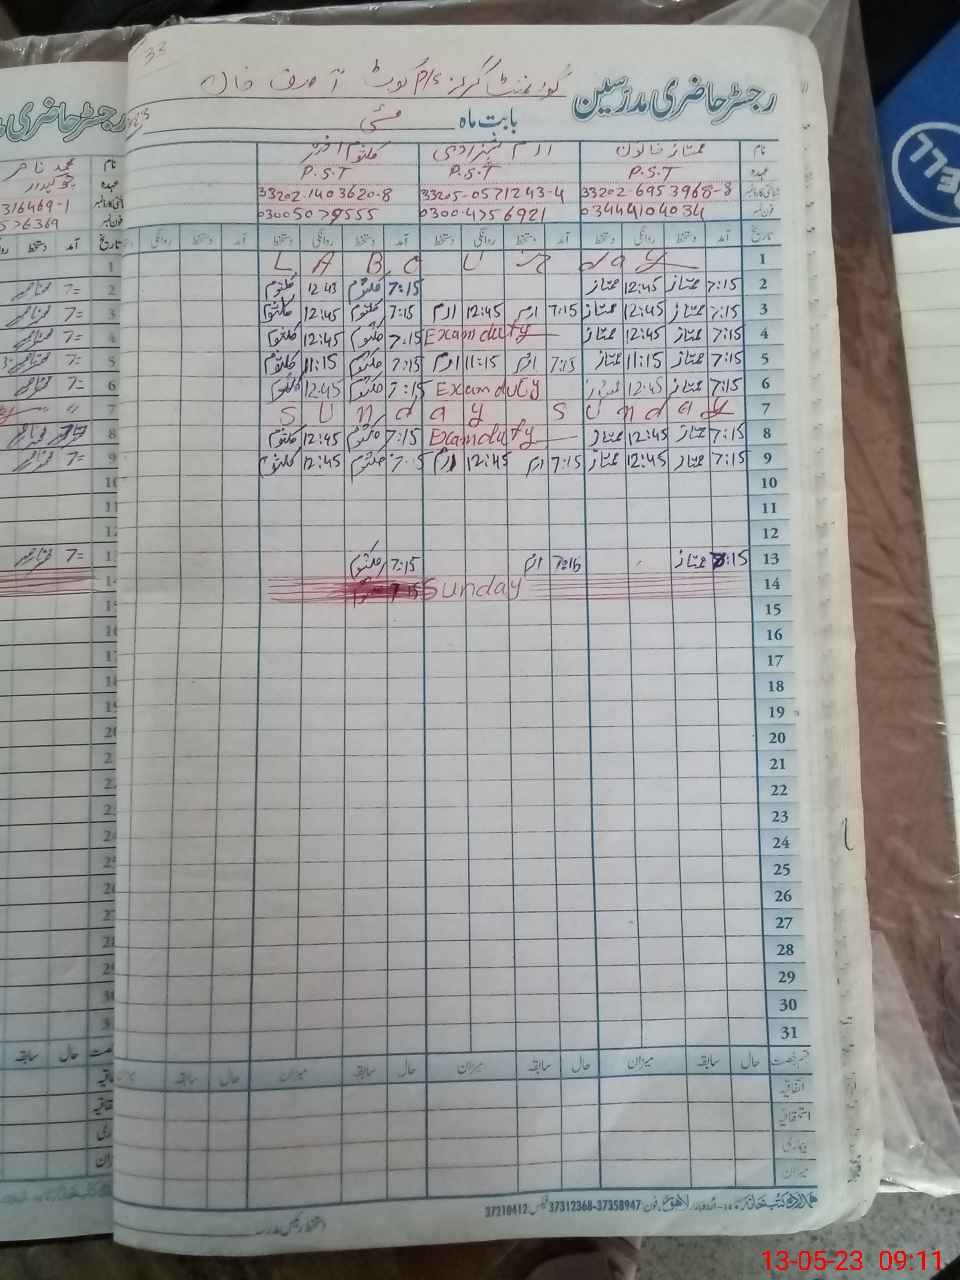 33
گورنمنٹ گرلز P/S کوٹ آصف خان
رجسٹر حاضری مدرسین
بابت ماہ مئی
نام ممتاز خاتون ارم شہزادی کلثوم اختر
عہدہ P.S.T P.S.T P.S.T
33202-6953968-8 33205-0571243-4 33202-1403620-8
فون نمبر 03444104034 0300-4756921 03005079555
تاریخ آمد دستخط روانگی دستخط آمد دستخط روانگی دستخط آمد دستخط روانگی دستخط آمد دستخط روانگی
1 LABOUR day
2 7:15 ممتاز 12:45 ممتاز 7:15 کلثوم 12:43 کلثوم
3 7:15 ممتاز 12:45 ممتاز 7:15 ارم 12:45 ارم 7:15 کلثوم 12:45 کلثوم
4 7:15 ممتاز 12:45 ممتاز Exam duty 7:15 کلثوم 12:45 کلثوم
5 7:15 ممتاز 11:15 ممتاز 7:15 ارم 11:15 ارم 7:15 کلثوم 11:15 کلثوم
6 7:15 ممتاز 12:45 ممتاز Exam duty 7:15 کلثوم 12:45 کلثوم
7 Sunday Sunday
8 7:15 ممتاز 12:45 ممتاز Exam duty 7:15 کلثوم 12:45 کلثوم
9 7:15 ممتاز 12:45 ممتاز 7:15 ارم 12:45 ارم 7:15 کلثوم 12:45 کلثوم
10
11
12
13 7:15 ممتاز 7:15 ارم 7:15 کلثوم
14 Sunday 7:15
15
16
17
18
19
20
21
22
23
24
25
26
27
28
29
30
31
قسم رخصت حال سابقہ میزان حال سابقہ میزان حال سابقہ میزان حال سابقہ
اتفاقیہ
استحقاقیہ
بیماری
میزان
فون 37312368-37358947 فیکس 37210412
رجسٹر حاضری
نام محمد ناصر
عہدہ چوکیدار
316469-1
576369
تاریخ آمد دستخط
حال سابقہ
ELL
13-05-23 09:11